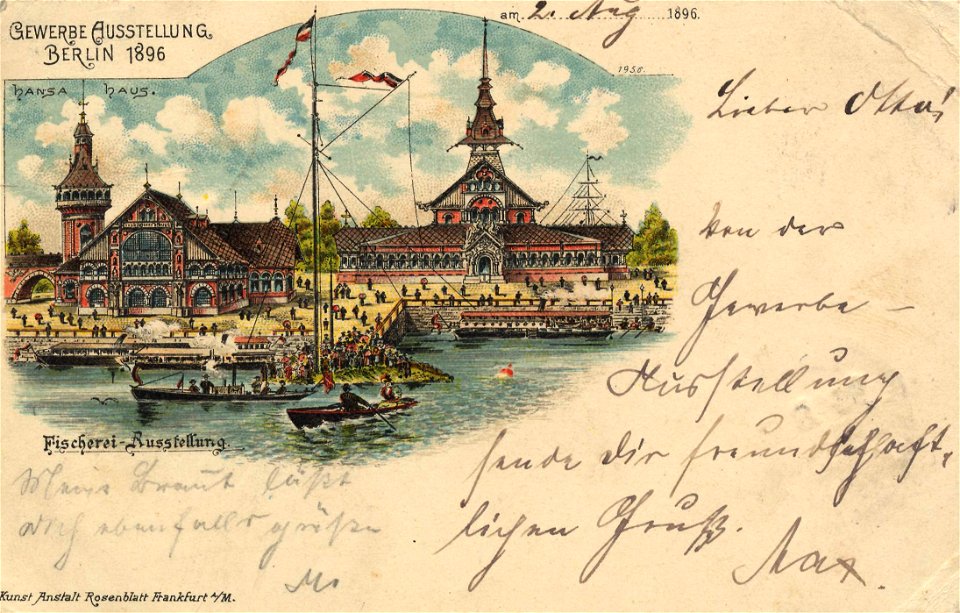 GEWERBE AUSSTELLUNG
BERLIN 1896
am 2. Aug 1896.
HANSA HAUS.
1956.
Lieber Otto!
Von der
Gewerbe-
Ausstellung
sende Dir freundschaft-
lichen Gruß.
Max.
Fischerei-Ausstellung.
Meine Braut läßt
Dich ebenfalls grüßen
Kunst Anstalt Rosenblatt Frankfurt a/M.